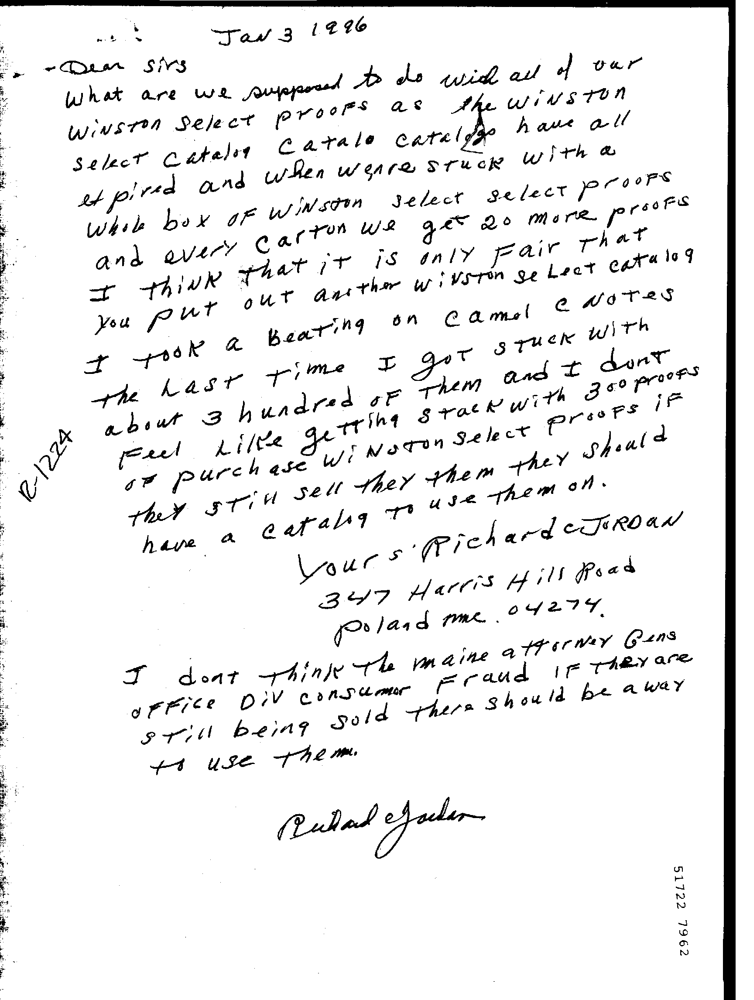 Jan 3 1996
Dear Sirs
What are we supposed to do with all of our
Winston Select proofs as the Winston
Select Catalog Catalo Catalogs have all
expired and when wenre stuck with a
whole box of Winston select select proofs
and every Carton we get 20 more proofs
I think that it is only Fair That
you put out another Winston Select catalog
I took a Beating on Camel C Notes
the Last Time I got stuck with
about 3 hundred of Them and I dont
Feel Like getting stuck with 300 proofs
of purchase Winston Select proofs if
they still sell they them they should
have a catalog to use them on.
Yours Richard C JORDAN
347 Harris Hill Road
Poland me. 04274.
I dont think the maine attorney Gens
office Div consumer Fraud IF They are
still being sold there should be a way
to use them.
Richard C Jordan
R-1224
51722 7962